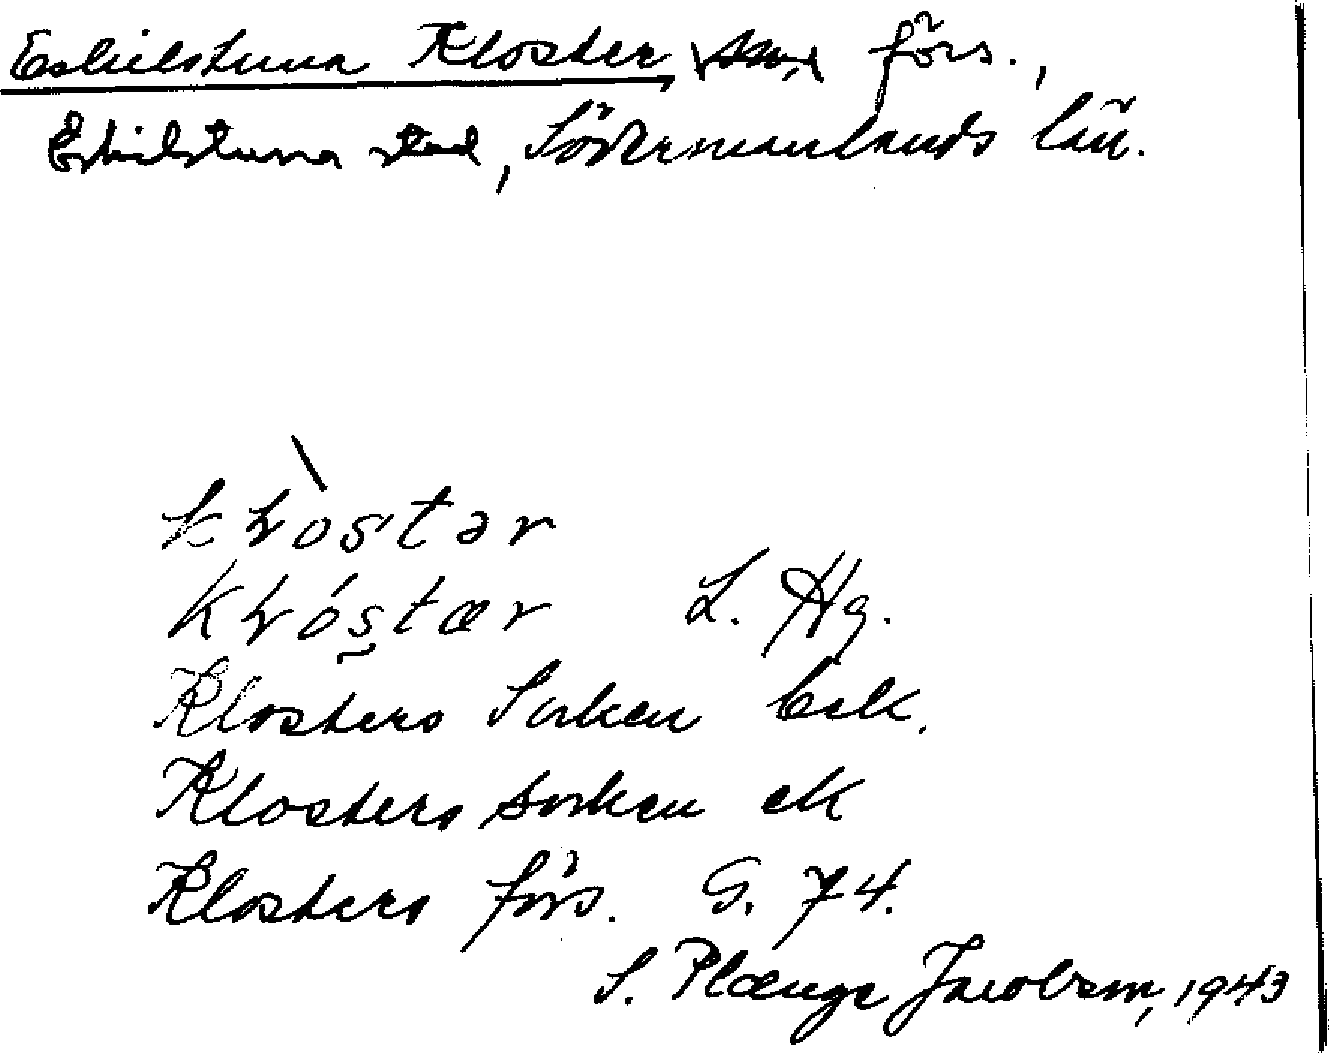 Eskilstuna Kloster, förs.,
Eskilstuna stad, Södermanlands län.
kłòstər
kłóstær L. Hg.
Klosters Socken bek.
Klosters socken ek
Klosters förs. G. 74.
S. Plænge Jacobson, 1943